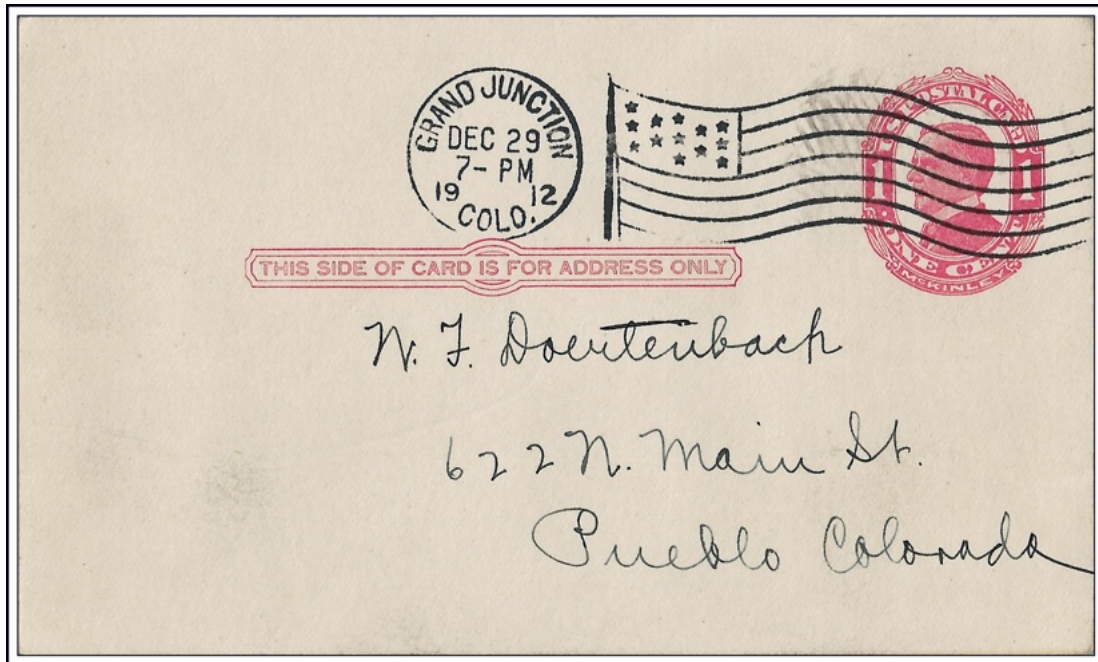 GRAND JUNCTION
DEC 29
7- PM
19 12
COLO.
U.S. POSTAL CARD
1 1
· ONE CENT ·
McKINLEY
THIS SIDE OF CARD IS FOR ADDRESS ONLY
W. F. Doertenbach
622 N. Main St.
Pueblo Colorado